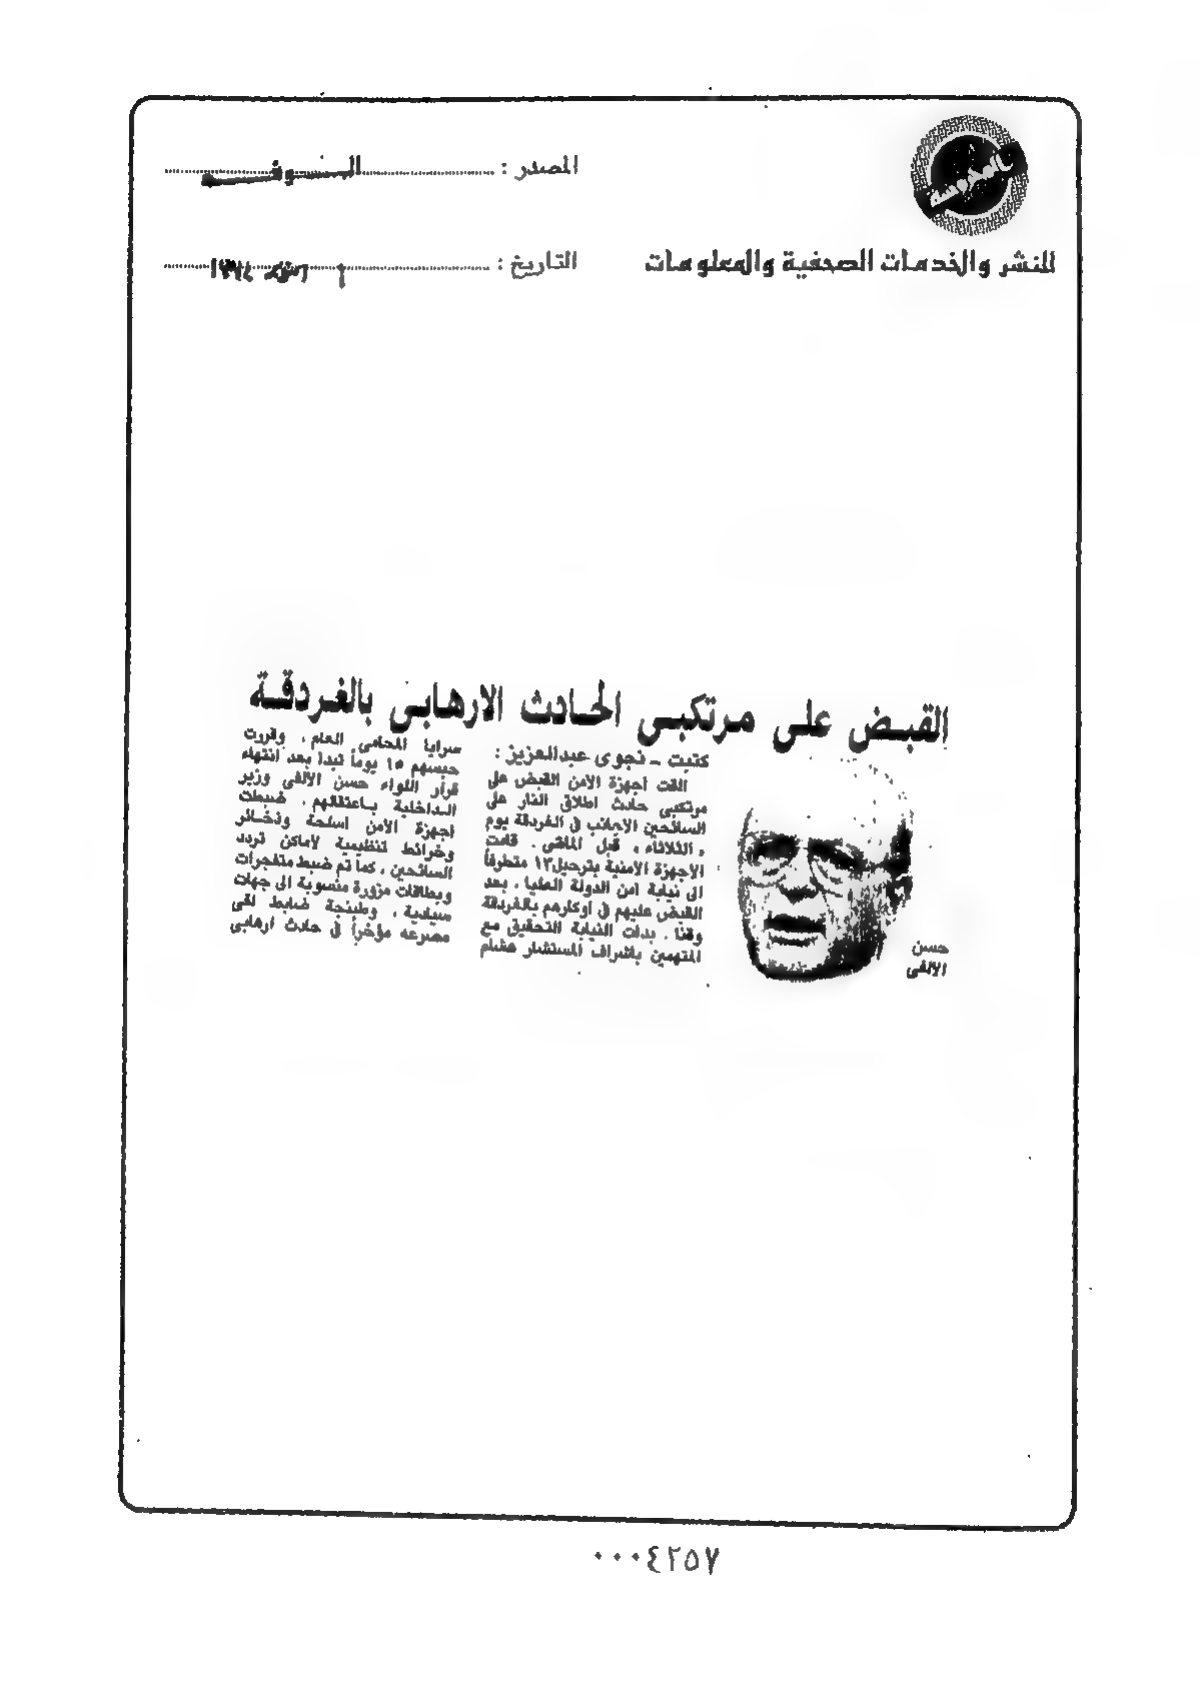 المحروسة
المصدر : الوفد
للنشر والخدمات الصحفية والمعلومات
التاريخ :
القبض على مرتكبى الحادث الارهابى بالغردقة
كتبت - نجوى عبدالعزيز :
القت اجهزة الامن القبض على
مرتكبى حادث اطلاق النار على
السائحين الاجانب فى الغردقة يوم
« الثلاثاء » قبل الماضى . قامت
الاجهزة الامنية بترحيل ١٣ متطرفاً
الى نيابة امن الدولة العليا ، بعد
القبض عليهم فى اوكارهم بالغردقة
وقنا . بدات النيابة التحقيق مع
المتهمين باشراف المستشار هشام
سرايا المحامى العام ، وقررت
حبسهم ١٥ يوماً تبدا بعد انتهاء
قرار اللواء حسن الالفى وزير
الداخلية باعتقالهم . ضبطت
اجهزة الامن اسلحة وذخائر
وخرائط تنظيمية لاماكن تردد
السائحين ، كما تم ضبط متفجرات
وبطاقات مزورة منسوبة الى جهات
سيادية ، وطبنجة ضابط لقى
مصرعه مؤخراً فى حادث ارهابى
حسن
الالفى
٠٠٠٤٢٥٧